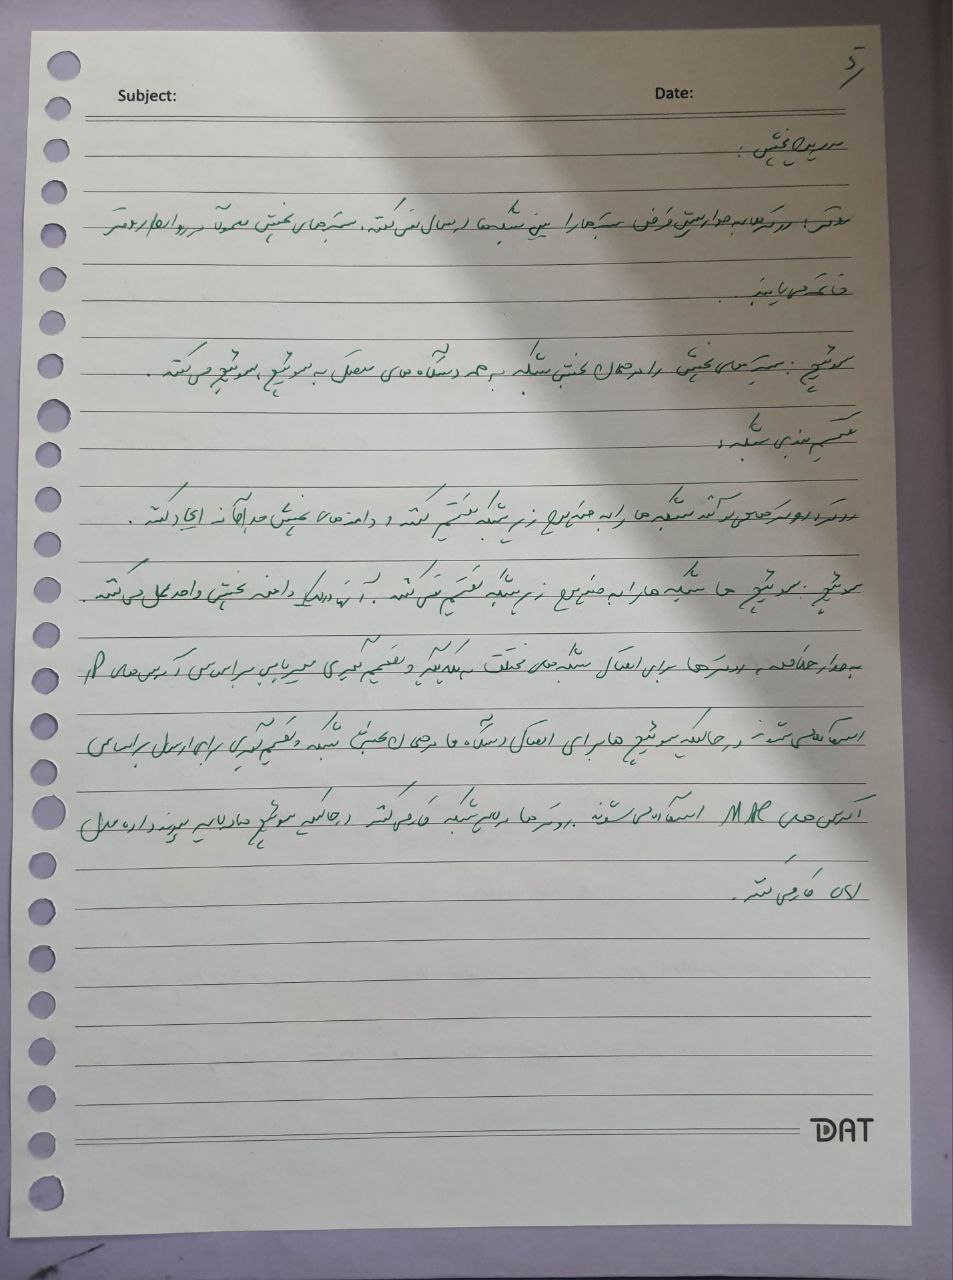 Subject: Date:
مدیریت پخش :
روتر : روترها به طور پیش فرض بسته‌ها را بین شبکه‌ها ارسال نمی‌کنند. بسته‌های پخش معمولاً در روتر
خاتمه می‌یابند.
سوئیچ : بسته‌های پخش را در همان بخش شبکه به همه دستگاه‌های متصل به سوئیچ، سوئیچ می‌کند.
تقسیم بندی شبکه :
روتر : روترها می‌توانند شبکه‌ها را به چندین زیرشبکه تقسیم کنند و دامنه‌های پخش جداگانه ایجاد کنند.
سوئیچ : سوئیچ ها شبکه ها را به چندین زیرشبکه تقسیم نمی‌کنند. آنها در یک دامنه پخش واحد عمل می‌کنند.
به طور خلاصه، روترها برای اتصال شبکه‌های مختلف به یکدیگر و تصمیم گیری مسیریابی بر اساس آدرس‌های IP
استفاده می‌شوند در حالیکه سوئیچ ها برای اتصال دستگاه ها در همان بخش شبکه و تصمیم گیری برای ارسال بر اساس
آدرس های MAC استفاده می‌شوند. روترها در لایه شبکه کار می‌کنند در حالیکه سوئیچ ها در لایه پیوند داده مدل
OSI کار می‌کنند.
DAT